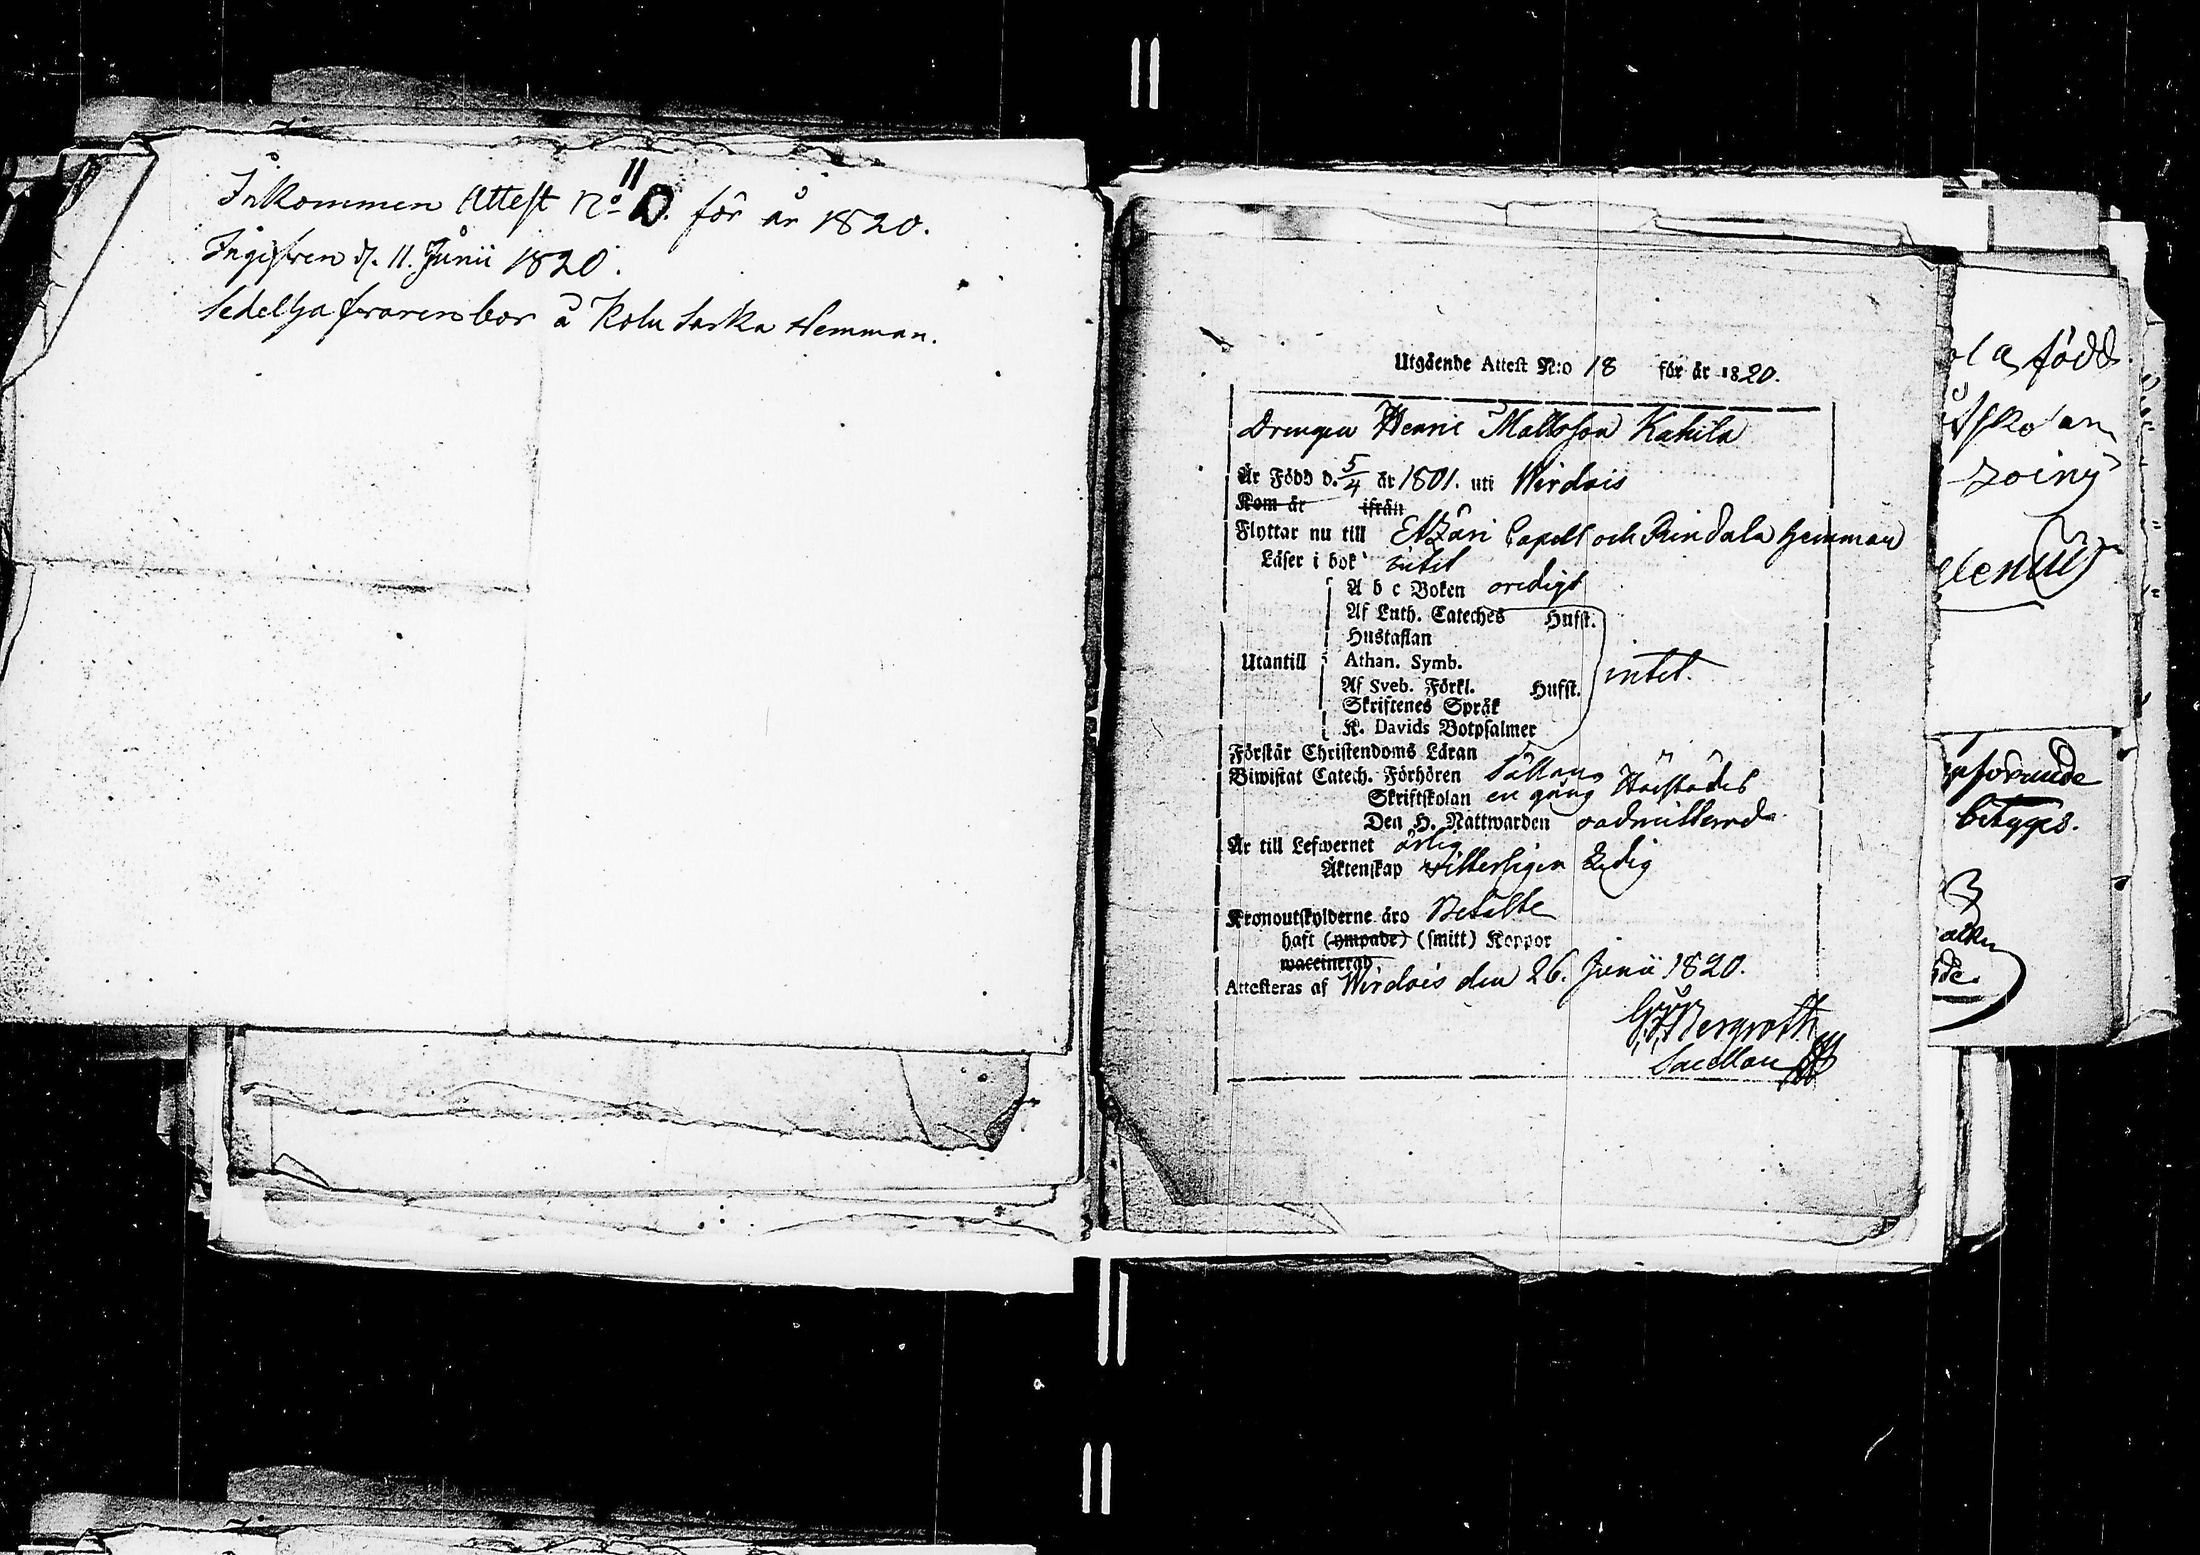 Inkommen Attest No 11. för år 1820.
Ingifven d. 11. Junii 1820.
Sedelhafvaren bor å Kolu Saska Hemman.
Utgående Attest N:o 18 för år 1820.
Drengen Henric Mattsson Kahila
Är Född d. 5/4 år 1801. uti Wirdois
Kom år ifrån
Flyttar nu till Etzäri Capell och Rindala Hemman
Läser i bok intet
A b c Boken oredigt
Af Luth. Cateches Hufst.
Hustaflan
Utantill Athan. Symb. intet.
Af Sveb. Förkl. Hufst.
Skriftenes Språk
K. Davids Botpsalmer
Förstår Christendoms Läran
Biwistat Catech. Förhören Sällan
Skriftskolan en gång
Den H. Nattwarden oadmitterad
Är till Lefwernet ärlig
Äktenskap Witterligen Ledig
Kronoutskylderne äro Betalte
haft (ympade) (smitt) Koppor
waccinerad
Attesteras af Wirdois den 26. Junii 1820.
Bergroth
Sacellan
ola född
zoiny
betyges.